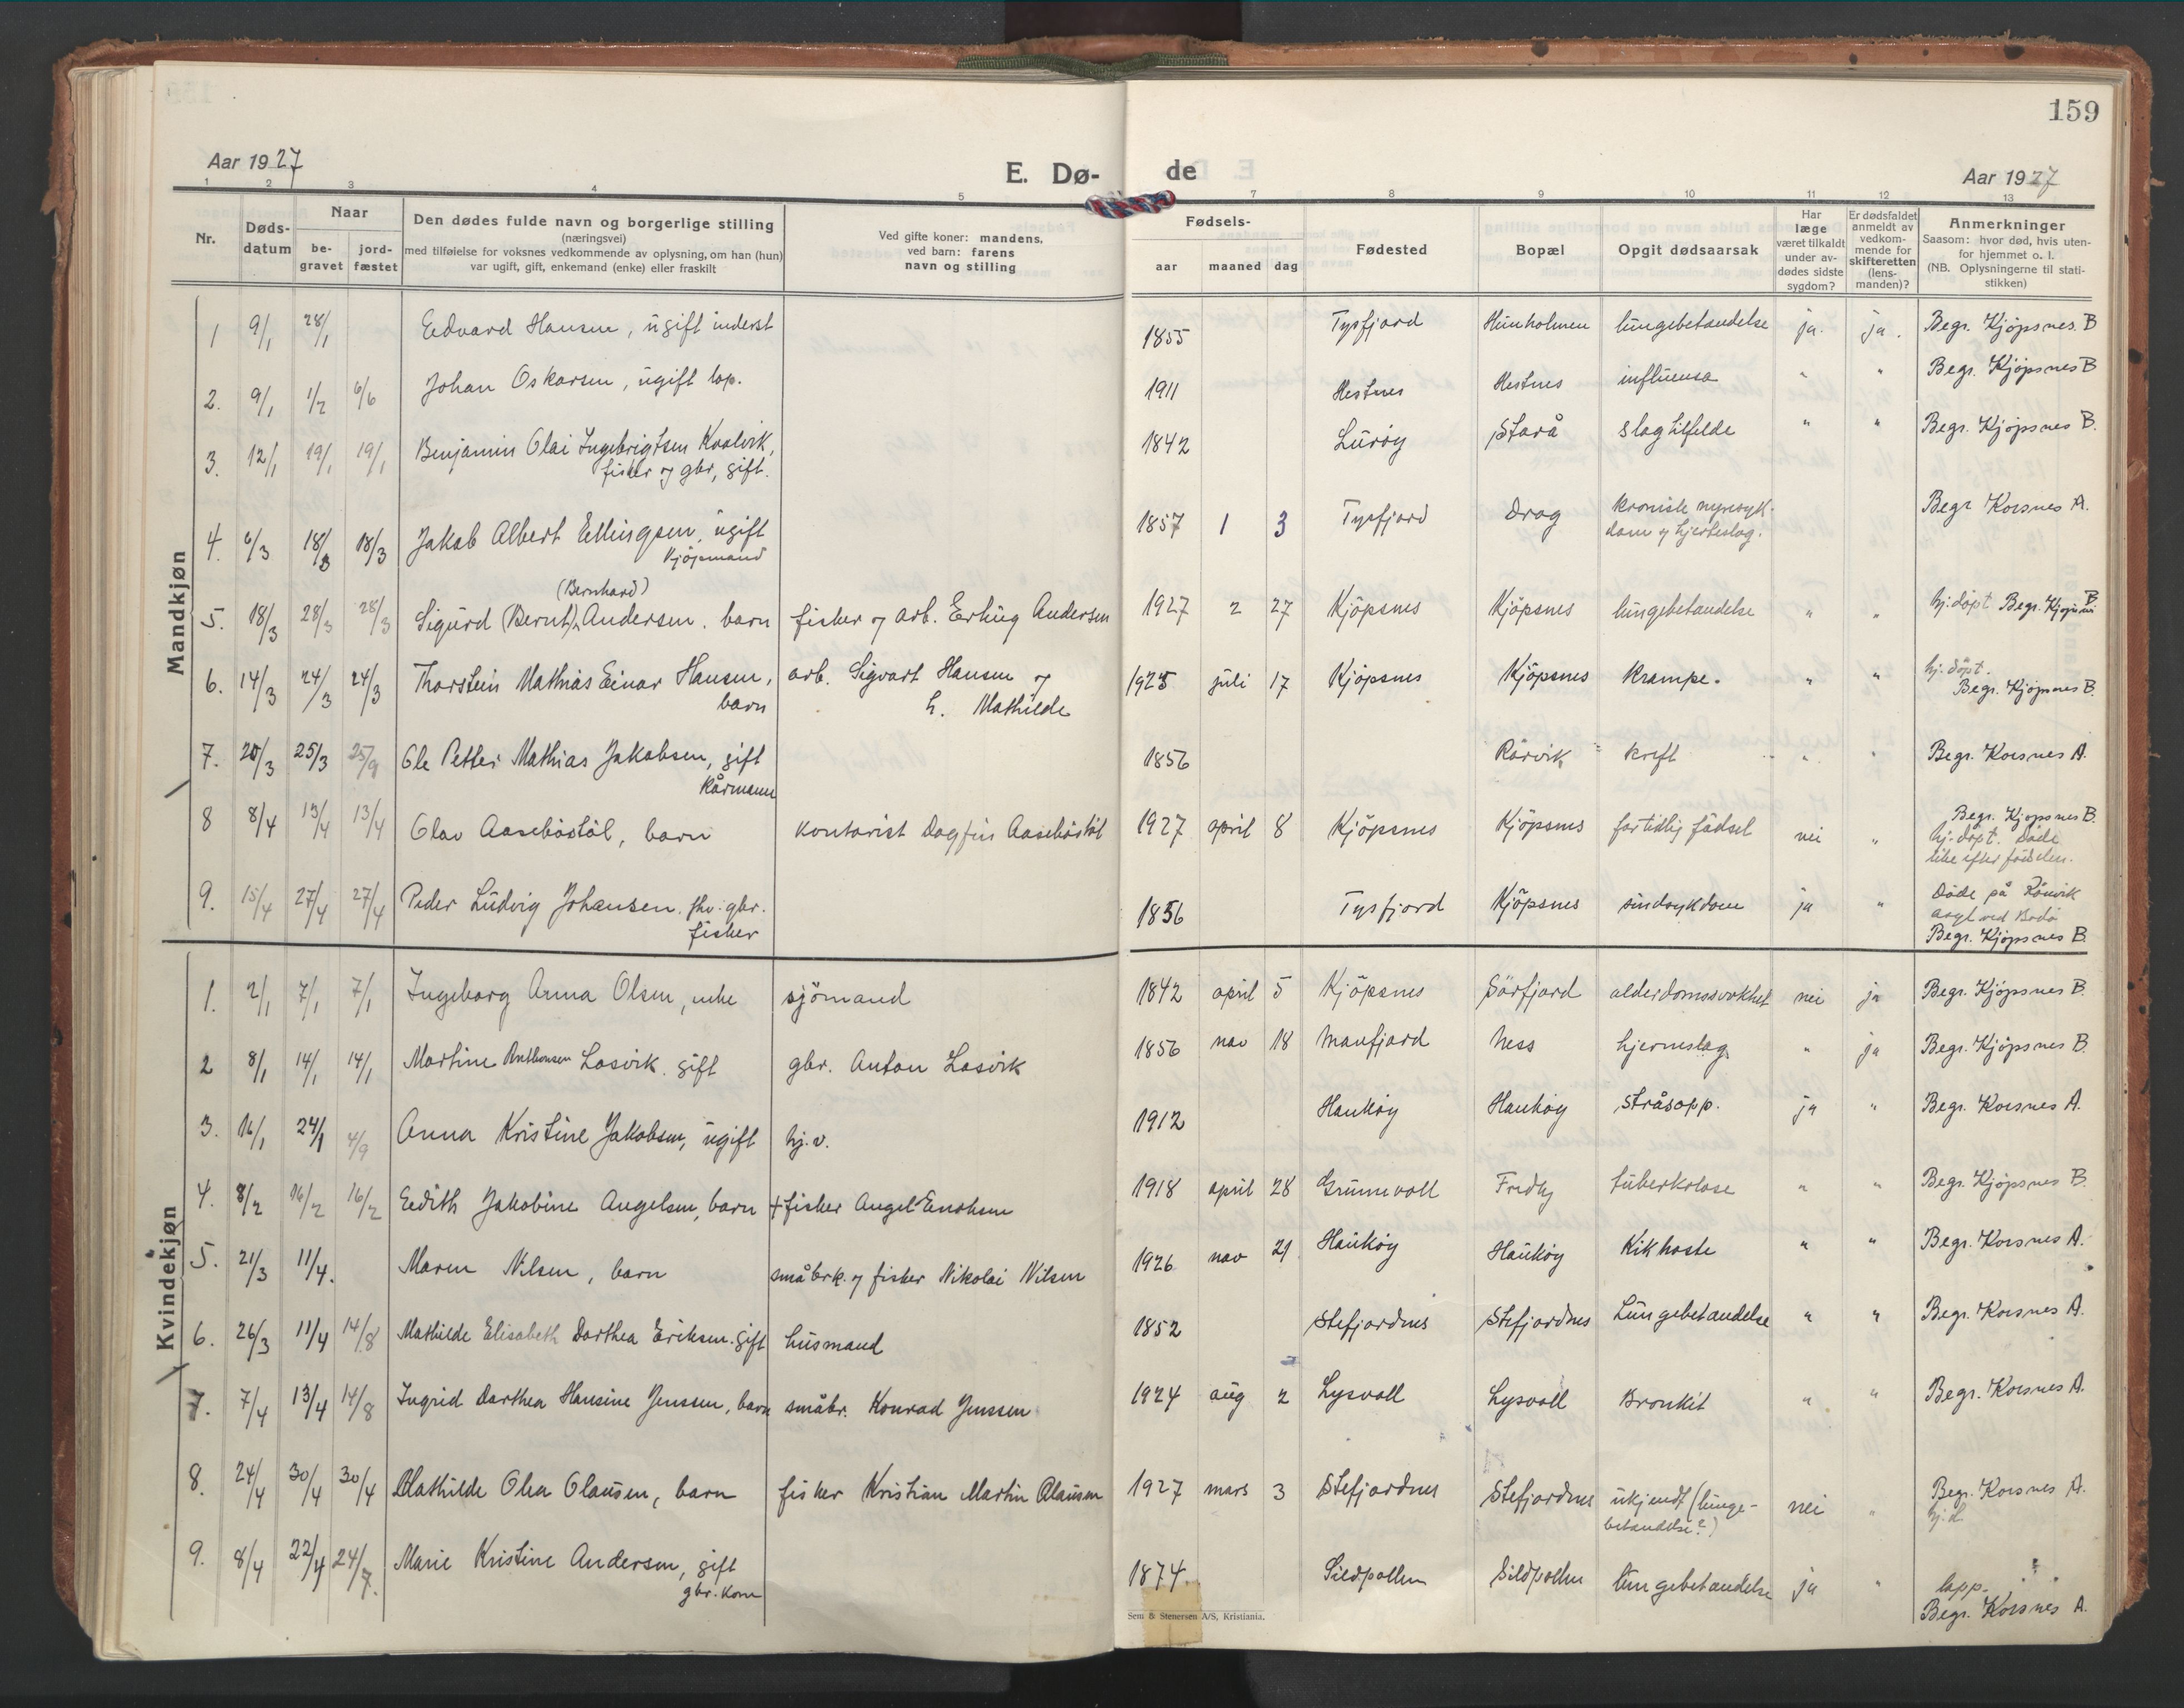 159
Aar 1927
E. Dø-
de
Aar 1927
1 2 3 4 5 7 8 9 10 11 12 13
Nr.
Døds-
datum
Naar
be-
gravet
jord-
fæstet
Den dødes fulde navn og borgerlige stilling
(næringsvei)
med tilføielse for voksnes vedkommende av oplysning, om han (hun)
var ugift, gift, enkemand (enke) eller fraskilt
Ved gifte koner: mandens,
ved barn: farens
navn og stilling
Fødsels-
aar maaned dag
Fødested
Bopæl
Opgit dødsaarsak
Har
læge
været tilkaldt
under av-
dødes sidste
sygdom?
Er dødsfaldet
anmeldt av
vedkom-
mende for
skifteretten
(lens-
manden)?
Anmerkninger
Saasom: hvor død, hvis uten-
for hjemmet o. l.
(NB. Oplysningerne til stati-
stikken)
Mandkjøn
1 9/1 28/1 Edvard Hansen, ugift inderst 1855 Tysfjord Hunholmen lungebetændelse ja. ja. Begr. Kjöpsnes. B
2. 9/1 1/2 6/6 Johan Oskarsen, ugift lap. 1911 Hestnes Hestnes influensa " " Begr. Kjöpsnes B
3. 12/1 19/1 19/1 Benjamin Olai Ingebrigtsen Kvalvik, 1842 Luröy Storå slagtilfelde " " Begr. Kjöpsnes B.
fisker og gbr, gift.
4. 6/3 18/3 18/3 Jakob Albert Ellingsen, ugift 1857 1 3 Tysfjord Drag kroniske nyresyk- Begr Korsnes A.
kjöpmand dom og hjerteslag.
(Bernhard)
5. 18/3 28/3 28/3 Sigurd (Bernt) Andersen. barn fisker og arb. Erling Andersen 1927 2 27 Kjöpsnes Kjöpsnes lungebetændelse " " hj. döpt Begr. Kjöpsnes B
6. 14/3 24/3 24/3 Thorstein Mathias Einar Hansen, arb. Sigvart Hansen og 1925 juli 17 Kjöpsnes Kjöpsnes Krampe. " " hj. döpt.
barn h. Mathilde Begr. Kjöpsnes B.
7. 20/3 25/3 25/9 Ole Petter Mathias Jakobsen, gift 1856 Rörvik kreft " " Begr. Korsnes A.
Kårmann
8 8/4 13/4 13/4 Olav Aaseböstöl, barn kontorist Dagfin Aaseböstöl 1927 april 8 Kjöpsnes Kjöpsnes for tidlig födsel nei " Begr. Kjöpsnes B.
hj. döpt. Döde
like efter födselen.
9. 15/4 27/4 27/4 Peder Ludvig Johansen. fhv. gbr. 1856 Tysfjord Kjöpsnes sindsykdom ja " Döde på Rönvik
fisker asyl ved Bodö
Begr. Kjöpsnes B.
Kvindekjøn
1. 2/1 7/1 7/1 Ingeborg Anna Olsen, enke sjömand 1842 april 5 Kjöpsnes Sörfjord alderdomssvakhet nei ja Begr. Kjöpsnes B.
2 8/1 14/1 14/1 Martine Anthonsen Losvik. gift gbr. Anton Losvik 1856 nov 18 Manfjord Ness hjerneslag " ja Begr. Kjöpsnes B.
3. 16/1 24/1 4/9 Anna Kristine Jakobsen, ugift hj. v. 1912 Hauköy Hauköy stråsopp. ja " Begr. Korsnes A.
4. 8/2 16/2 16/2 Edith Jakobine Angelsen, barn + fisker Angel Enoksen 1918 april 28 Grunnvoll Fredly tuberkolose " " Begr. Kjöpsnes B.
5. 21/3 11/4. Maren Nilsen, barn småbrk. og fisker Nikolai Nilsen 1926 nov 21 Hauköy Hauköy Kikhoste " " Begr. Korsnes A.
6. 26/3 11/4 14/8 Mathilde Elisabeth Dorthea Eriksen. gift husmand 1852 Stefjordnes Stefjordnes Lungebetændelse " " Begr. Korsnes A.
7. 7/4 13/4 14/8 Ingrid Dorthea Hansine Jenssen, barn småbr. Konrad Jenssen 1924 aug 2 Lysvoll Lysvoll Bronkit " " Begr. Korsnes A.
8. 24/4 30/4 30/4 Mathilde Olea Olausen, barn fisker Kristian Martin Olausen 1927 mars 3 Stefjordnes Stefjordnes ukjendt (lunge- nei " Begr. Korsnes A.
betændelse?) hj. d.
9. 8/4 22/4 24/7. Marie Kristine Andersen, gift 1874. Sildpollen Sildpollen lungebetændelse ja " lapp.
gbr. kone Begr. Korsnes A.
Sem & Stenersen A/S, Kristiania.